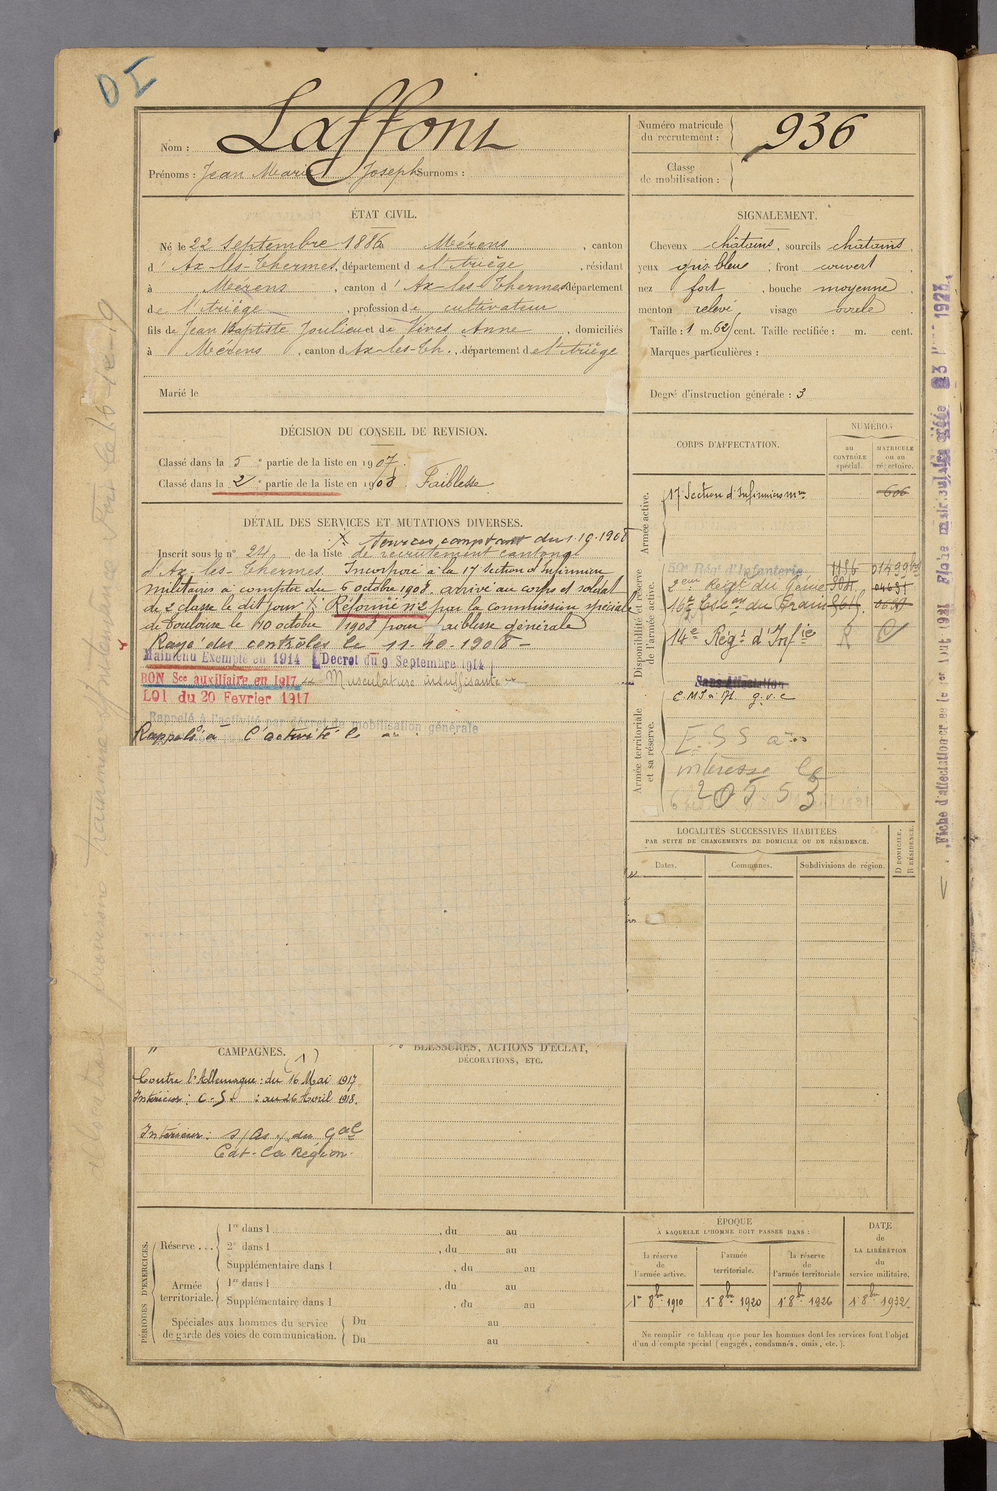 DI
Nom : Laffont
Prénoms : Jean Marie Joseph Surnoms :
Numéro matricule du recrutement : 936
Classe de mobilisation :
ÉTAT CIVIL.
Né le 22 Septembre 1886 à Mérens, canton
d'Ax-les-Thermes, département de l'Ariège, résidant
à Mérens, canton d'Ax-les-Thermes département
de l'Ariège, profession de cultivateur
fils de Jean Baptiste Joulieu et de Vives Anne, domiciliés
à Mérens, canton d'Ax-les-Th., département de l'Ariège
Marié le
SIGNALEMENT.
Cheveux châtains, sourcils châtains
yeux gris bleus, front couvert
nez fort, bouche moyenne
menton relevé visage ovale
Taille : 1 m. 62 cent. Taille rectifiée : m. cent.
Marques particulières :
Degré d'instruction générale : 3
DÉCISION DU CONSEIL DE REVISION.
Classé dans la 5e partie de la liste en 1907.
Classé dans la 2e partie de la liste en 1908. Faiblesse
DÉTAIL DES SERVICES ET MUTATIONS DIVERSES.
X Services comptant du 1-10-1908
Inscrit sous le n° 24 de la liste de recrutement cantonal
d'Ax-les-Thermes. Incorporé à la 17 Section d'Infirmiers
militaires à compter du 6 octobre 1908. arrivé au corps et soldat
de 2 classe le dit jour X Réformé n°2 par la commission spéciale
de Toulouse le 10 octobre 1908 pour faiblesse générale
Rayé des contrôles le 11-10-1908 -
Maintenu Exempté en 1914 (Décret du 9 Septembre 1914)
BON Sce auxiliaire en 1917 Musculature insuffisante
LOI du 20 Fevrier 1917
Rappelé à l'activité par décret de mobilisation générale
Rappelé à l'activité le
CORPS D'AFFECTATION.
NUMÉROS
au CONTRÔLE spécial.
MATRICULE ou au répertoire.
Armée active.
17 Section d'Infirmiers mres 606
Disponibilité et réserve de l'armée active.
59e Régt d'Infanterie 1186
2eme Regt du Génie
16e Escon du Train
14e Régt d'Infie R C
Armée territoriale et sa réserve.
Sans Affectation
intéresse le
20553
LOCALITÉS SUCCESSIVES HABITÉES
PAR SUITE DE CHANGEMENTS DE DOMICILE OU DE RÉSIDENCE.
Dates.
Communes.
Subdivisions de région.
D DOMICILE. R RÉSIDENCE.
CAMPAGNES. (1)
Contre l'Allemagne : du 16 Mai 1917
Intérieur : C-S. : au 26 Avril 1918.
Intérieur :
BLESSURES, ACTIONS D'ÉCLAT,
DÉCORATIONS, ETC.
PÉRIODES D'EXERCICES.
Réserve ...
1re dans l , du au
2e dans l , du au
Supplémentaire dans l , du au
Armée territoriale.
1re dans l , du au
Supplémentaire dans l , du au
Spéciales aux hommes du service
de garde des voies de communication.
Du au
Du au
ÉPOQUE
À LAQUELLE L'HOMME DOIT PASSER DANS :
la réserve de l'armée active.
l'armée territoriale.
la réserve de l'armée territoriale
DATE de LA LIBÉRATION du service militaire.
1er 8bre 1910
1er 8bre 1920
1er 8bre 1926
1er 8bre 1932
Ne remplir ce tableau que pour les hommes dont les services font l'objet
d'un décompte spécial (engagés, condamnés, omis, etc.).